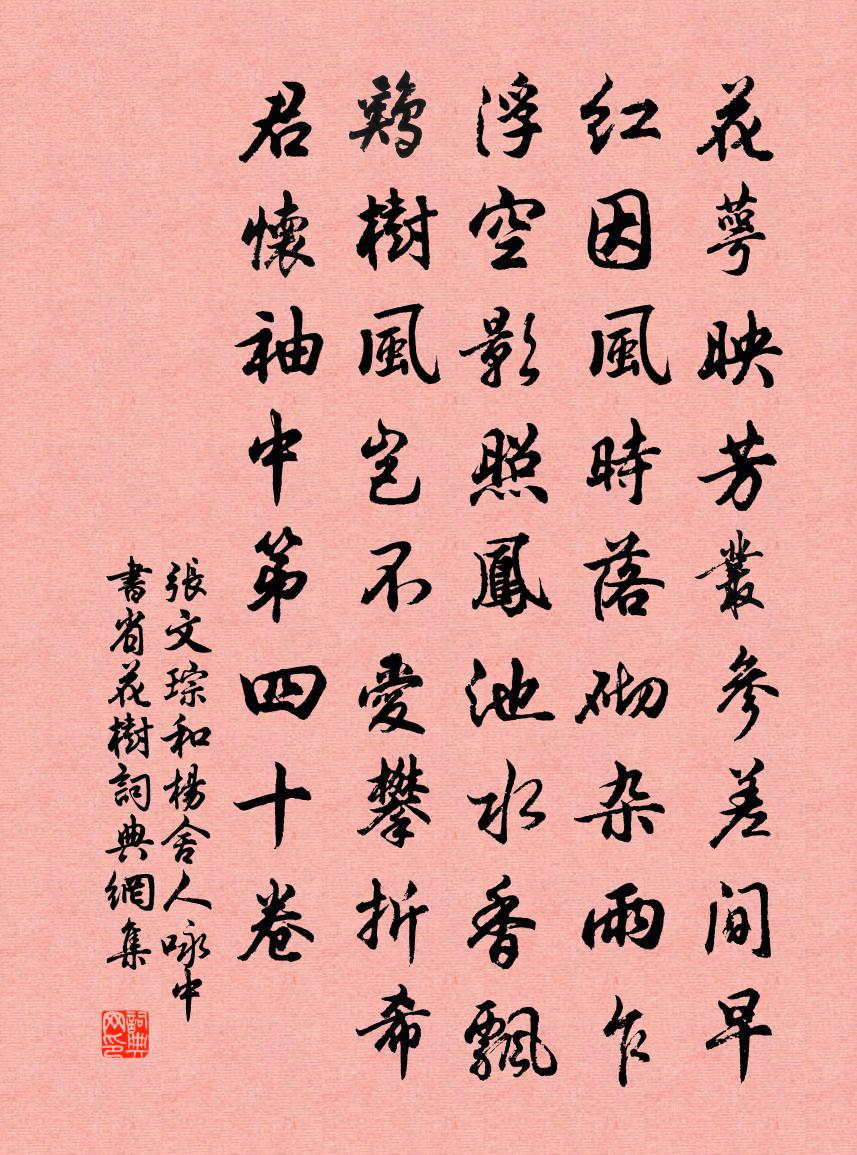 花萼映芳叢參差間早
紅因風時落砌杂雨乍
浮空影照鳳池水香飄
鷄樹風岂不愛攀折希
君懷袖中第四十卷
張文琮和楊舍人咏中
書省花樹詞典網集
詞典网印